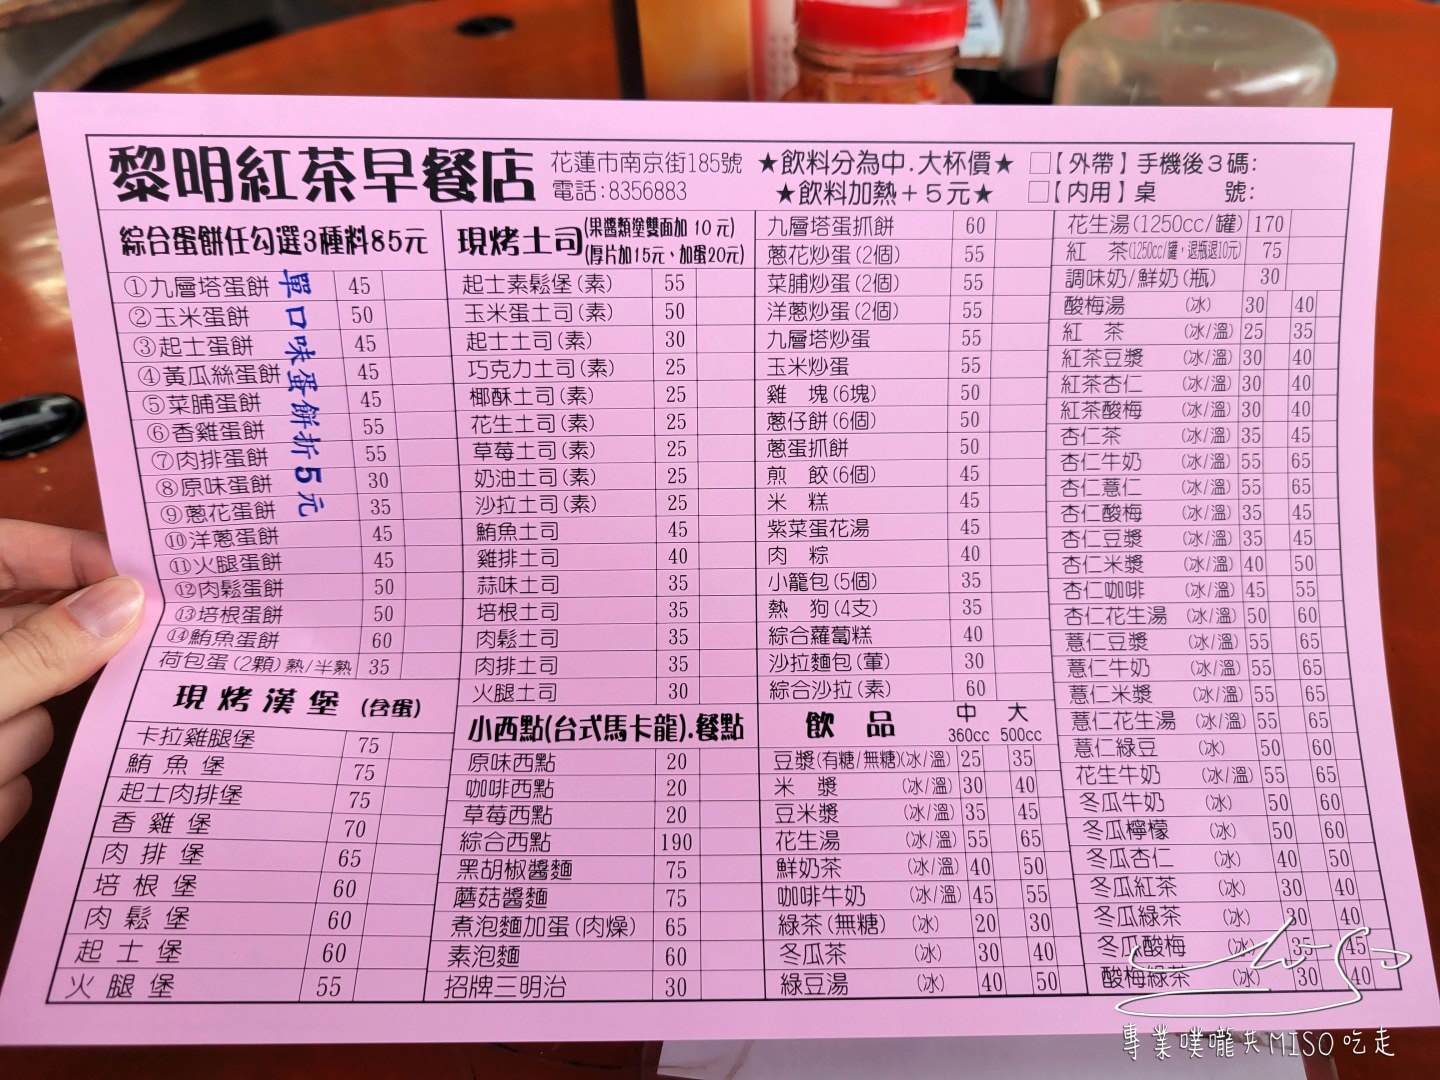 黎明紅茶早餐店
花蓮市南京街185號
電話:8356883
★飲料分為中.大杯價★
★飲料加熱+5元★
□【外帶】手機後3碼:
□【內用】桌 號:
綜合蛋餅任勾選3種料85元
①九層塔蛋餅 45
②玉米蛋餅 50
③起士蛋餅 45
④黃瓜絲蛋餅 45
⑤菜脯蛋餅 45
⑥香雞蛋餅 55
⑦肉排蛋餅 55
⑧原味蛋餅 30
⑨蔥花蛋餅 35
⑩洋蔥蛋餅 45
⑪火腿蛋餅 45
⑫肉鬆蛋餅 50
⑬培根蛋餅 50
⑭鮪魚蛋餅 60
荷包蛋(2顆)熟/半熟 35
單口味蛋餅折5元
現烤漢堡 (含蛋)
卡拉雞腿堡 75
鮪魚堡 75
起士肉排堡 75
香雞堡 70
肉排堡 65
培根堡 60
肉鬆堡 60
起士堡 60
火腿堡 55
現烤土司 (果醬類塗雙面加 10元)
(厚片加15元、加蛋20元)
起士素鬆堡(素) 55
玉米蛋土司(素) 50
起士土司(素) 30
巧克力土司(素) 25
椰酥土司(素) 25
花生土司(素) 25
草莓土司(素) 25
奶油土司(素) 25
沙拉土司(素) 25
鮪魚土司 45
雞排土司 40
蒜味土司 35
培根土司 35
肉鬆土司 35
肉排土司 35
火腿土司 30
小西點(台式馬卡龍).餐點
原味西點 20
咖啡西點 20
草莓西點 20
綜合西點 190
黑胡椒醬麵 75
蘑菇醬麵 75
煮泡麵加蛋(肉燥) 65
素泡麵 60
招牌三明治 30
九層塔蛋抓餅 60
蔥花炒蛋(2個) 55
菜脯炒蛋(2個) 55
洋蔥炒蛋(2個) 55
九層塔炒蛋 55
玉米炒蛋 55
雞 塊(6塊) 50
蔥仔餅(6個) 50
蔥蛋抓餅 50
煎 餃(6個) 45
米 糕 45
紫菜蛋花湯 45
肉 粽 40
小籠包(5個) 35
熱 狗(4支) 35
綜合蘿蔔糕 40
沙拉麵包(葷) 30
綜合沙拉(素) 60
飲 品 中 大
360cc 500cc
豆漿(有糖/無糖)(冰/溫) 25 35
米 漿 (冰/溫) 30 40
豆米漿 (冰/溫) 35 45
花生湯 (冰/溫) 55 65
鮮奶茶 (冰/溫) 40 50
咖啡牛奶 (冰/溫) 45 55
綠茶(無糖) (冰) 20 30
冬瓜茶 (冰) 30 40
綠豆湯 (冰) 40 50
花生湯(1250cc/罐) 170
紅 茶(1250cc/罐,退瓶退10元) 75
調味奶/鮮奶(瓶) 30
酸梅湯 (冰) 30 40
紅 茶 (冰/溫) 25 35
紅茶豆漿 (冰/溫) 30 40
紅茶杏仁 (冰/溫) 30 40
紅茶酸梅 (冰/溫) 30 40
杏仁茶 (冰/溫) 35 45
杏仁牛奶 (冰/溫) 55 65
杏仁薏仁 (冰/溫) 55 65
杏仁酸梅 (冰/溫) 35 45
杏仁豆漿 (冰/溫) 35 45
杏仁米漿 (冰/溫) 40 50
杏仁咖啡 (冰/溫) 45 55
杏仁花生湯 (冰/溫) 50 60
薏仁豆漿 (冰/溫) 55 65
薏仁牛奶 (冰/溫) 55 65
薏仁米漿 (冰/溫) 55 65
薏仁花生湯 (冰/溫) 55 65
薏仁綠豆 (冰) 50 60
花生牛奶 (冰/溫) 55 65
冬瓜牛奶 (冰) 50 60
冬瓜檸檬 (冰) 50 60
冬瓜杏仁 (冰) 40 50
冬瓜紅茶 (冰) 30 40
冬瓜綠茶 (冰) 30 40
冬瓜酸梅 (冰) 35 45
酸梅綠茶 (冰) 30 40
專業噗嚨共MISO吃走